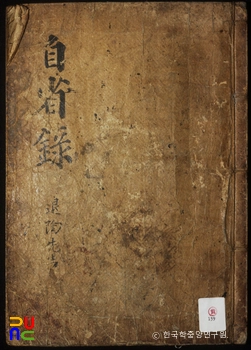 自省錄
退陶先生
159
© 한국학중앙연구원